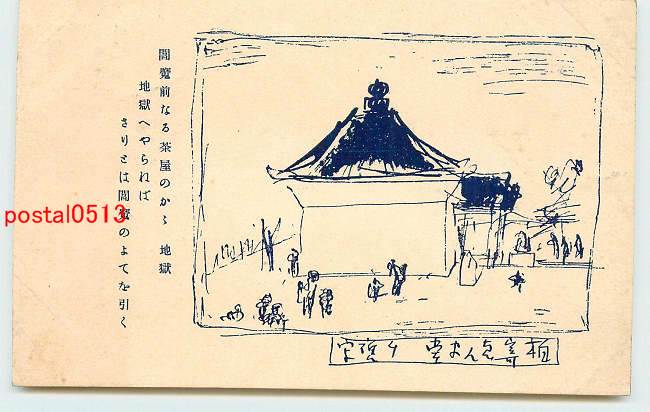 閻魔前なる茶屋のかゝ 地獄
地獄へやられば
さりとは閻魔のよてを引く
柏崎ゑんま堂
postal0513